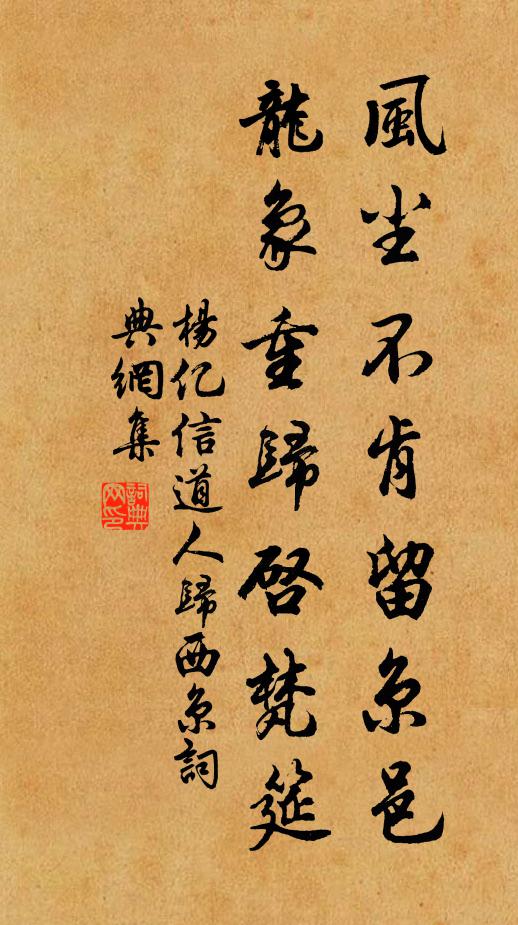 風尘不肯留京邑
龍象重歸啓梵筵
楊亿信道人歸西京詞
典網集
詞典
网印